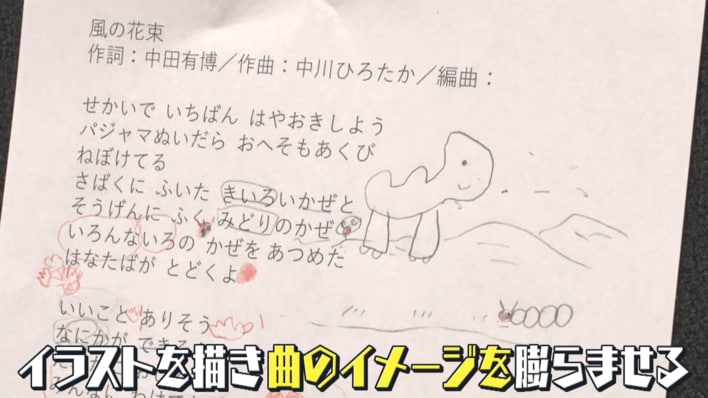 風の花束
作詞：中田有博／作曲：中川ひろたか／編曲：
せかいで いちばん はやおきしよう
パジャマぬいだら おへそもあくび
ねぼけてる
さばくに ふいた きいろいかぜと
そうげんに ふく みどりのかぜと
いろんないろの かぜを あつめた
はなたばが とどくよ
いいこと ありそう
なにかが でき
イラストを描き曲のイメージを膨らませる